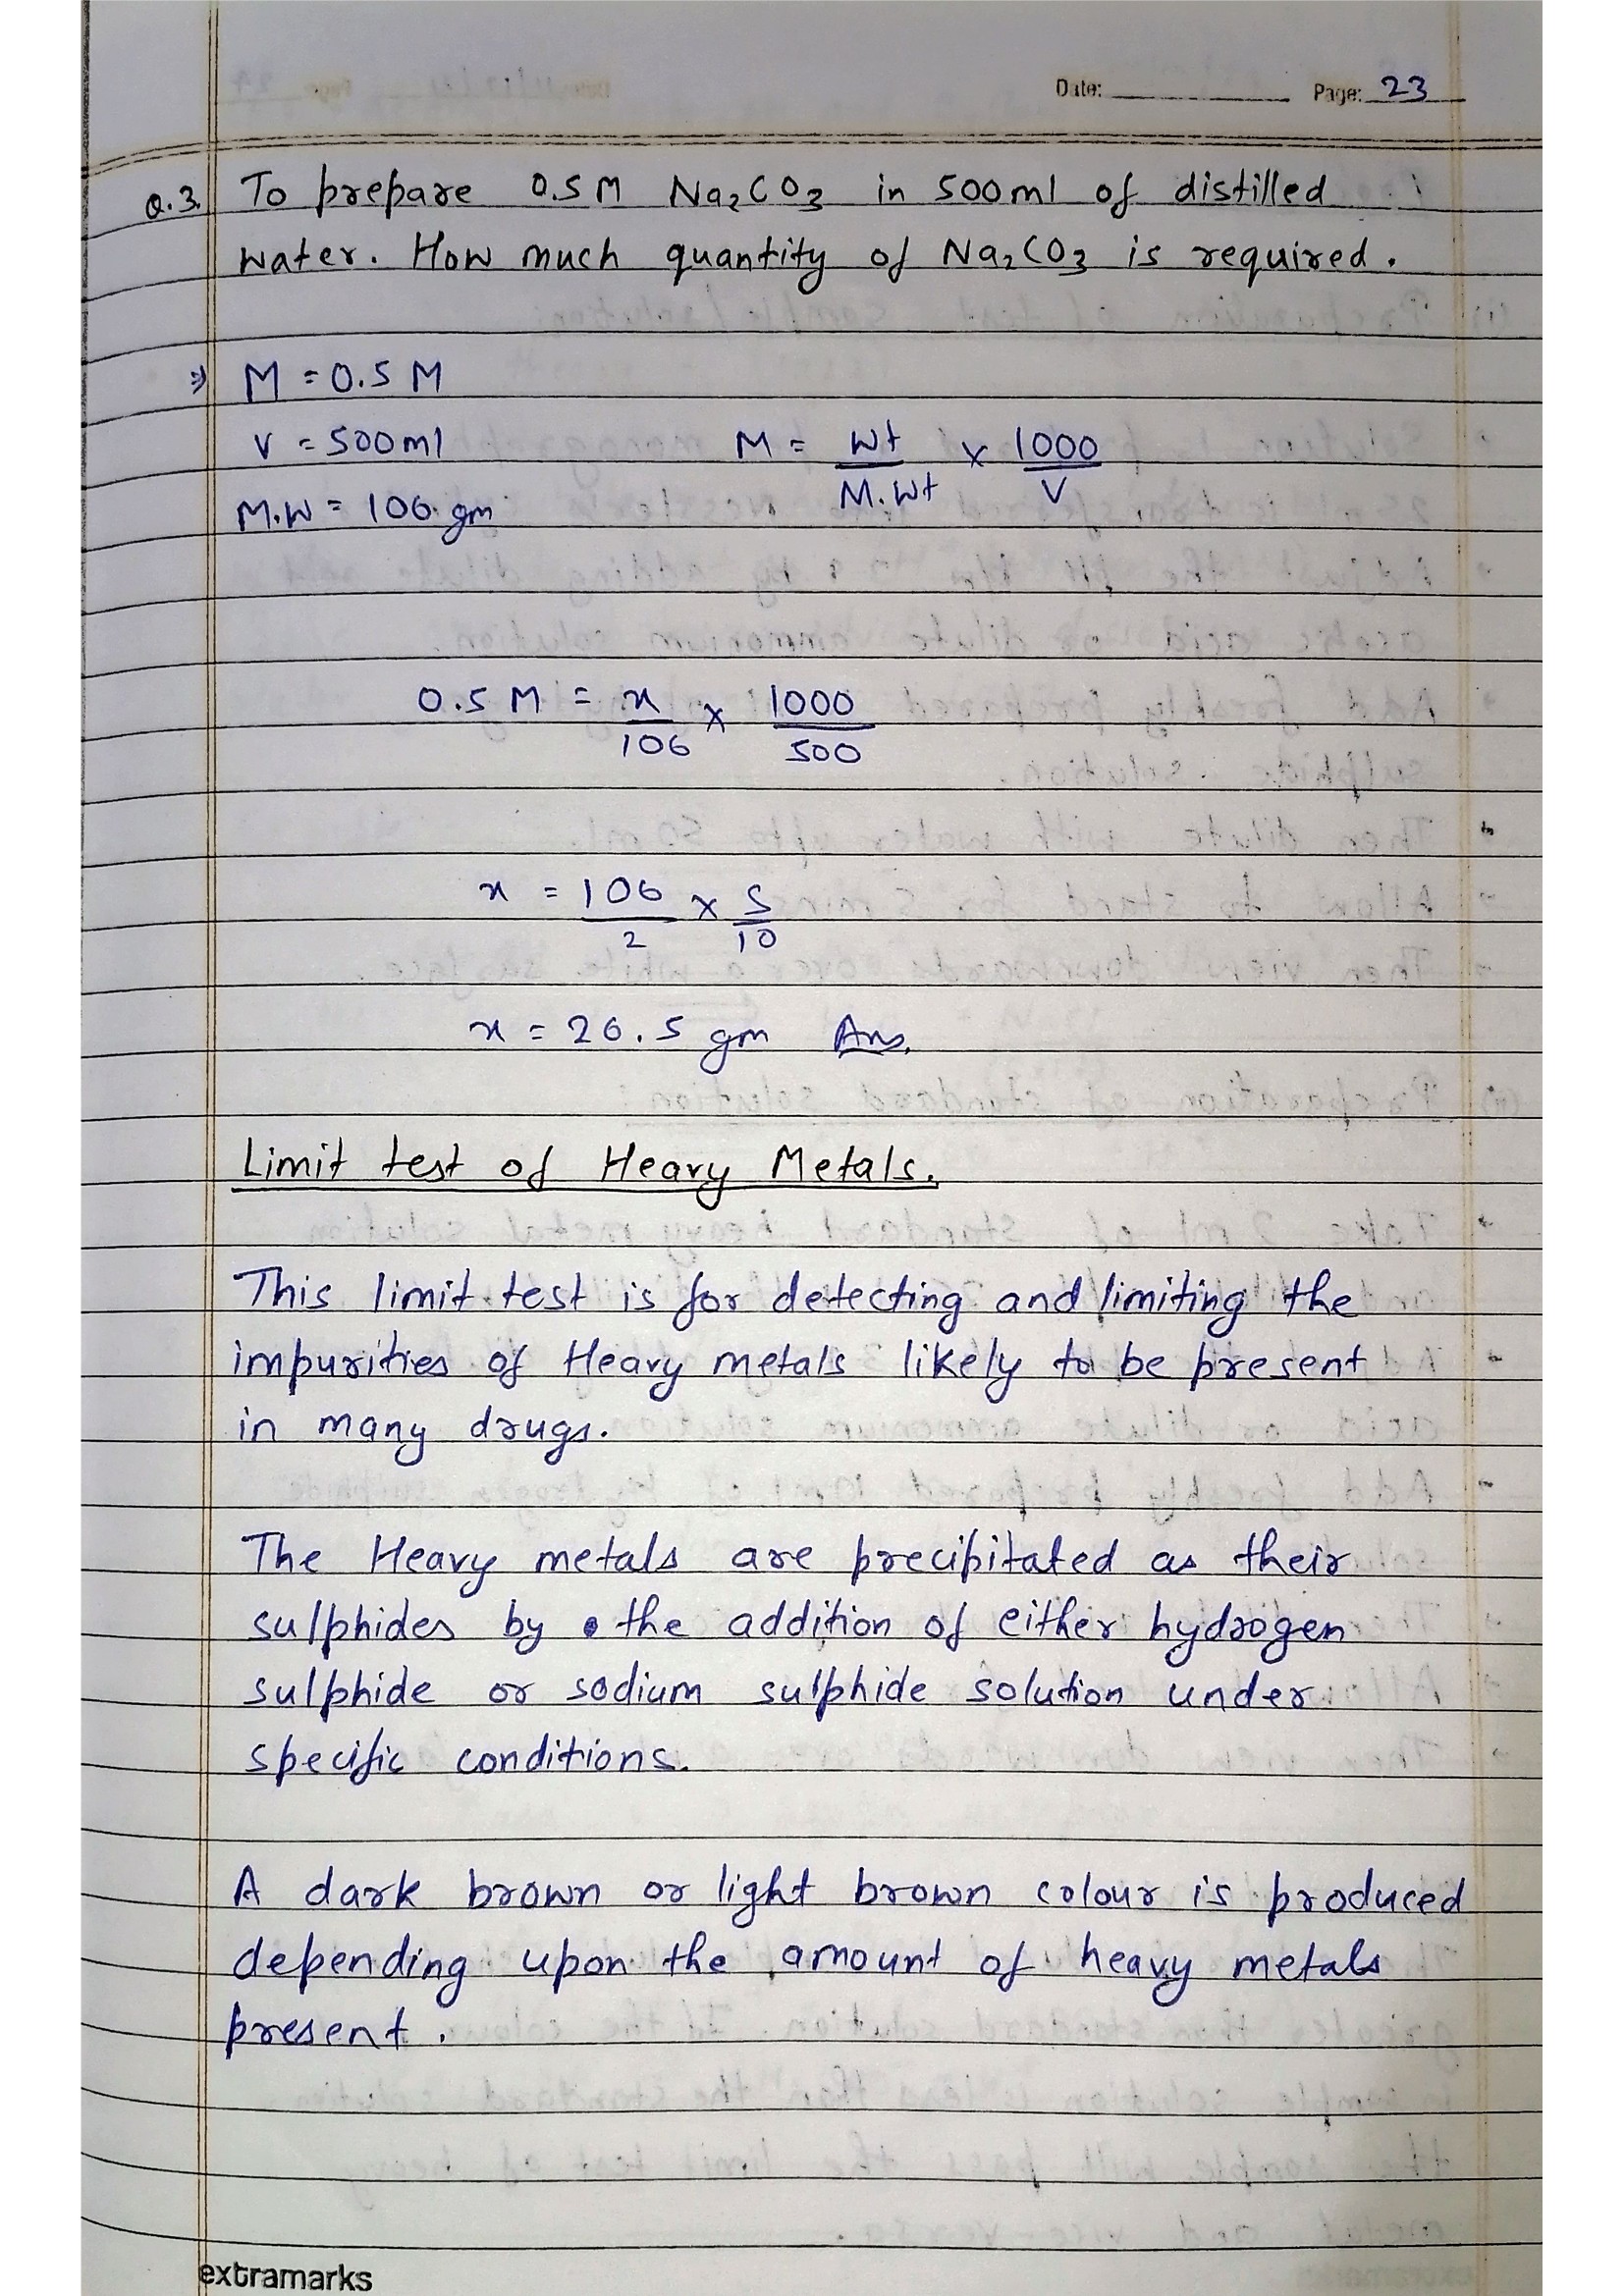 Date: Page: 23
Q.3. To prepare 0.5M Na₂CO₃ in 500ml of distilled
water. How much quantity of Na₂CO₃ is required.
⇒ M = 0.5 M
V = 500ml M = Wt/M.Wt × 1000/V
M.W = 106 gm
0.5 M = x/106 × 1000/500
x = 106/2 × 5/10
x = 26.5 gm Ans.
Limit test of Heavy Metals.
This limit test is for detecting and limiting the
impurities of Heavy metals likely to be present
in many drugs.
The Heavy metals are precipitated as their
sulphides by the addition of either hydrogen
sulphide or sodium sulphide solution under
specific conditions.
A dark brown or light brown colour is produced
depending upon the amount of heavy metals
present.
extramarks